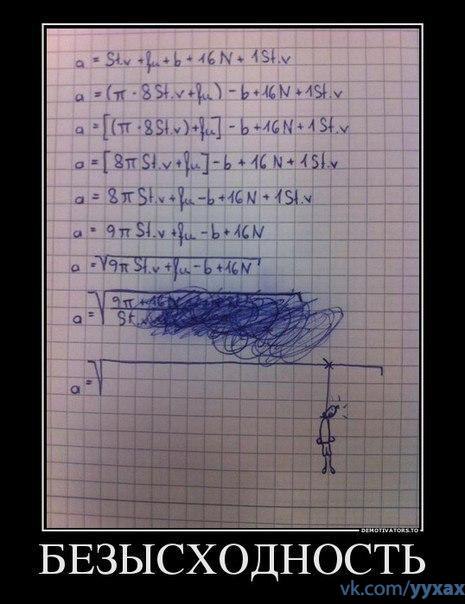 a = St.v + fu + b + 16N + 1St.v
a = (π · 8St.v + fu) - b + 16N + 1St.v
a = [(π · 8St.v) + fu] - b + 16N + 1St.v
a = [8π St.v + fu] - b + 16N + 1St.v
a = 8π St.v + fu - b + 16N + 1St.v
a = 9π St.v + fu - b + 16N
a = √9π St.v + fu - b + 16N
a = √ 9π + 16N
St.v
a = √
DEMOTIVATORS.TO
БЕЗЫСХОДНОСТЬ
vk.com/yyxax